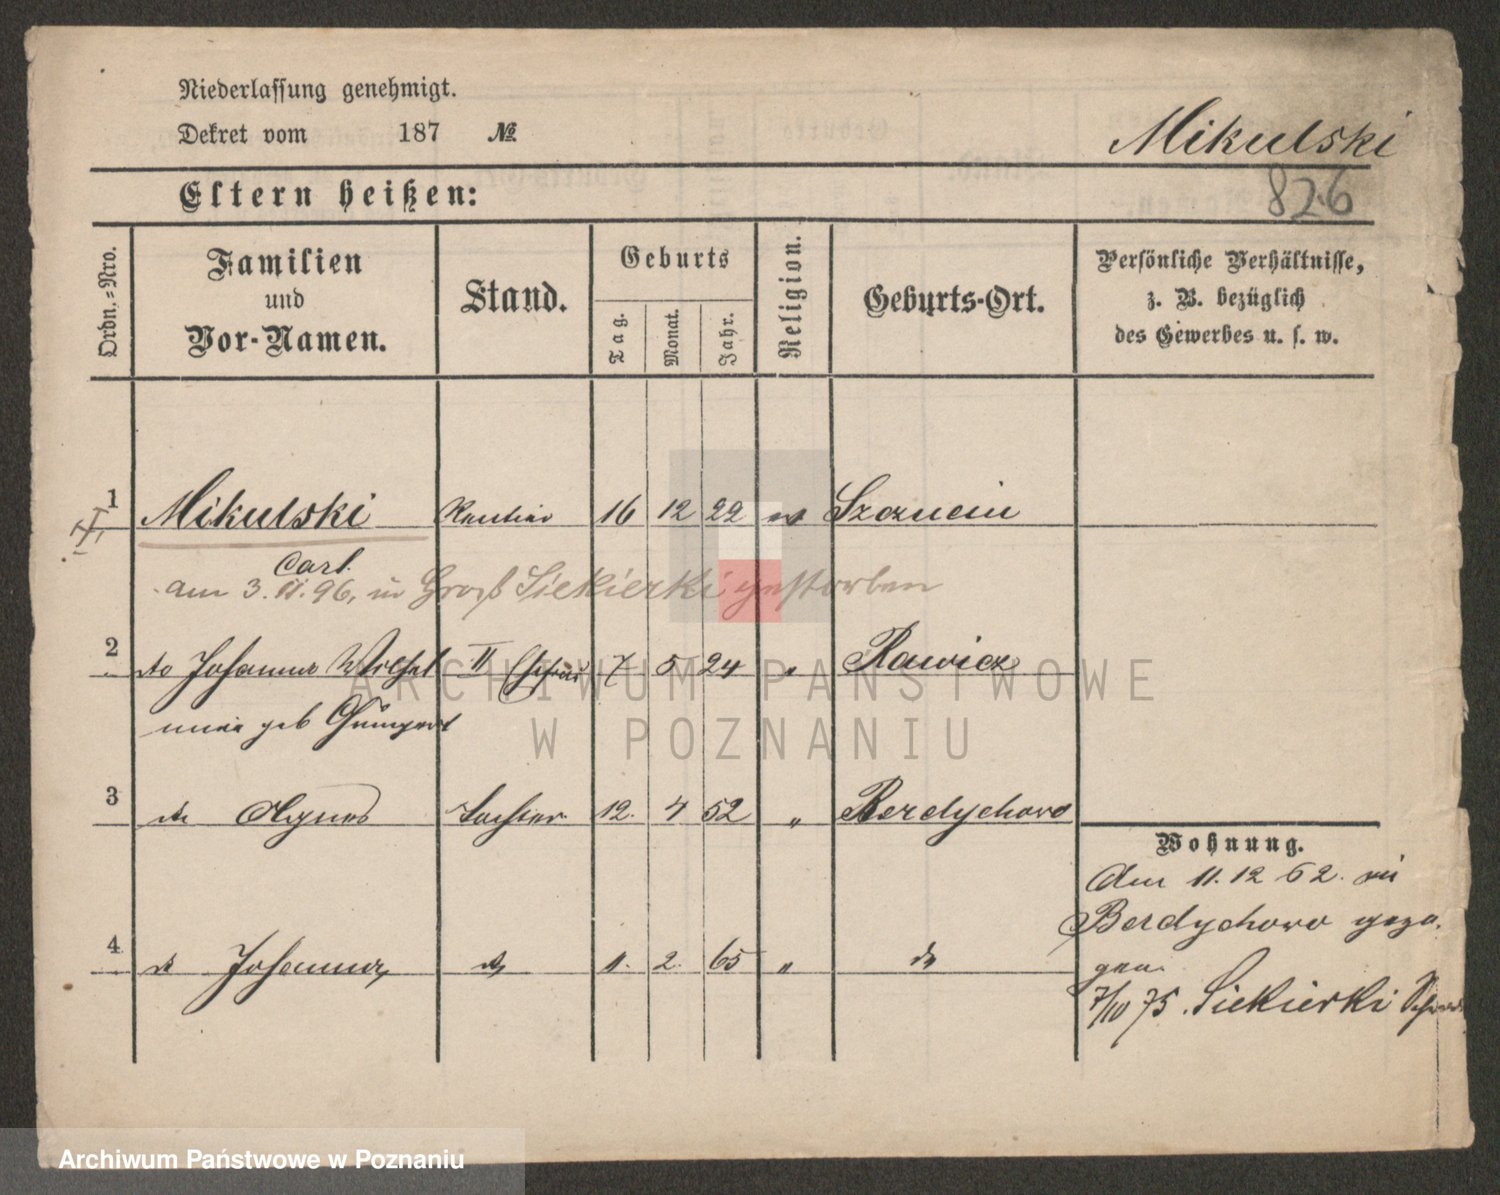 Niederlassung genehmigt.
Dekret vom 187 №
Mikulski
826
Eltern heißen:
Ordn.-Nro.
Familien und Vor-Namen.
Stand.
Geburts
Tag.
Monat.
Jahr.
Religion.
Geburts-Ort.
Persönliche Verhältnisse,
z. B. bezüglich
des Gewerbes u. s. w.
1 Mikulski Rentier 16 12 22 Szczucin
Carl
am 3. 11. 96, in Groß Siekierki gestorben
2 dto Johanna Wilhel II Ehefrau 7 5 24 " Rawicz
mine geb Gumpert
3 dto Agnes Tochter 12. 4 52 " Berdychowo
4 dto Johanna, dto 11. 2. 65 " dto
Wohnung.
Am 11. 12 62. in
Berdychowo gezo
gen.
7/10 75. Siekierki
ARCHIWUM PAŃSTWOWE
W POZNANIU
Archiwum Państwowe w Poznaniu